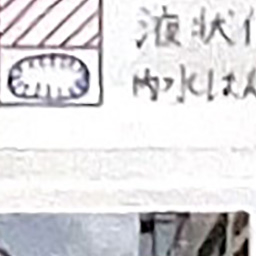 液状
内水はん